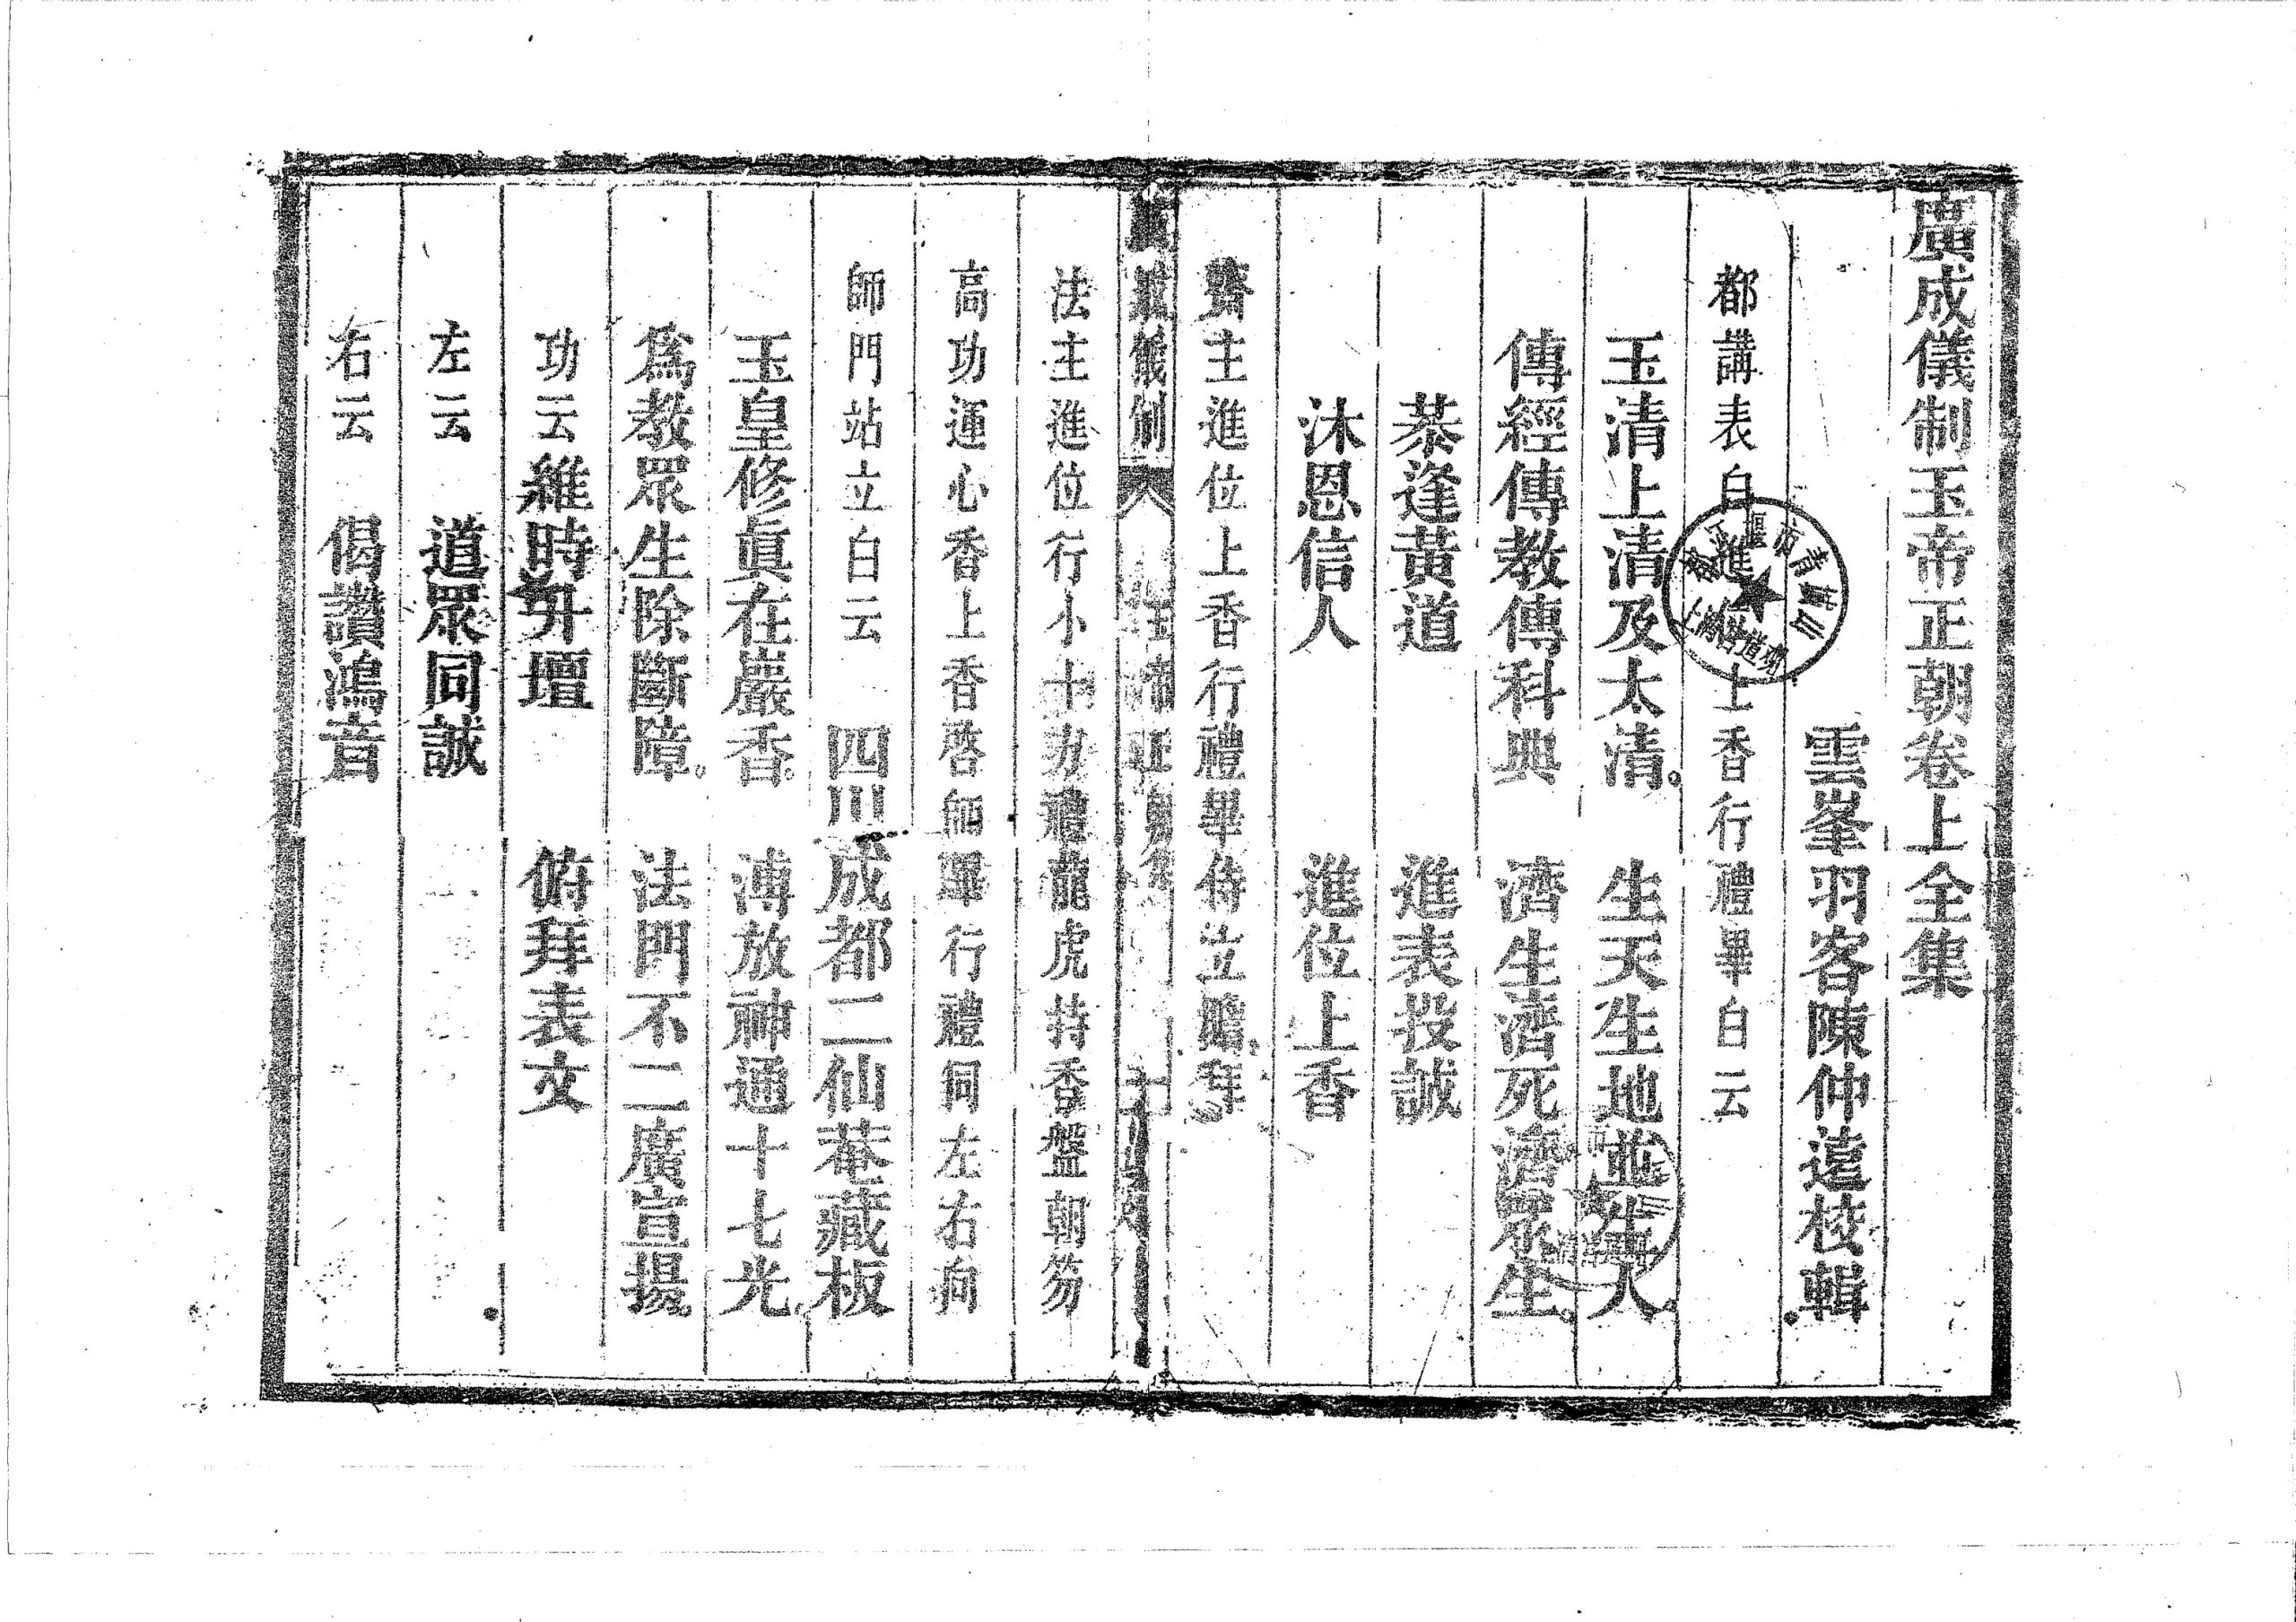 廣成儀制玉帝正朝卷上全集
雲峯羽客陳仲遠校輯
都講表白進位上香行禮畢白云
玉清上清及太清。 生天生地並生人
傳經傳教傳科典 濟生濟死濟眾生。
恭逢黃道 進表投誠
沐恩信人 進位上香
齋主進位上香行禮畢侍立瞻拜
廣成儀制 玉帝正朝全集
法主進位行小十方禮龍虎持香盤朝笏
高功運心香上香啓師畢行禮同左右向
師門站立白云 四川成都二仙菴藏板
玉皇修眞在巖香。 溥放神通十七光。
爲教眾生除斷障。 法門不二廣宣揚。
功云維時升壇 俯拜表文
左云 道眾同誠
右云 偈讚鴻音